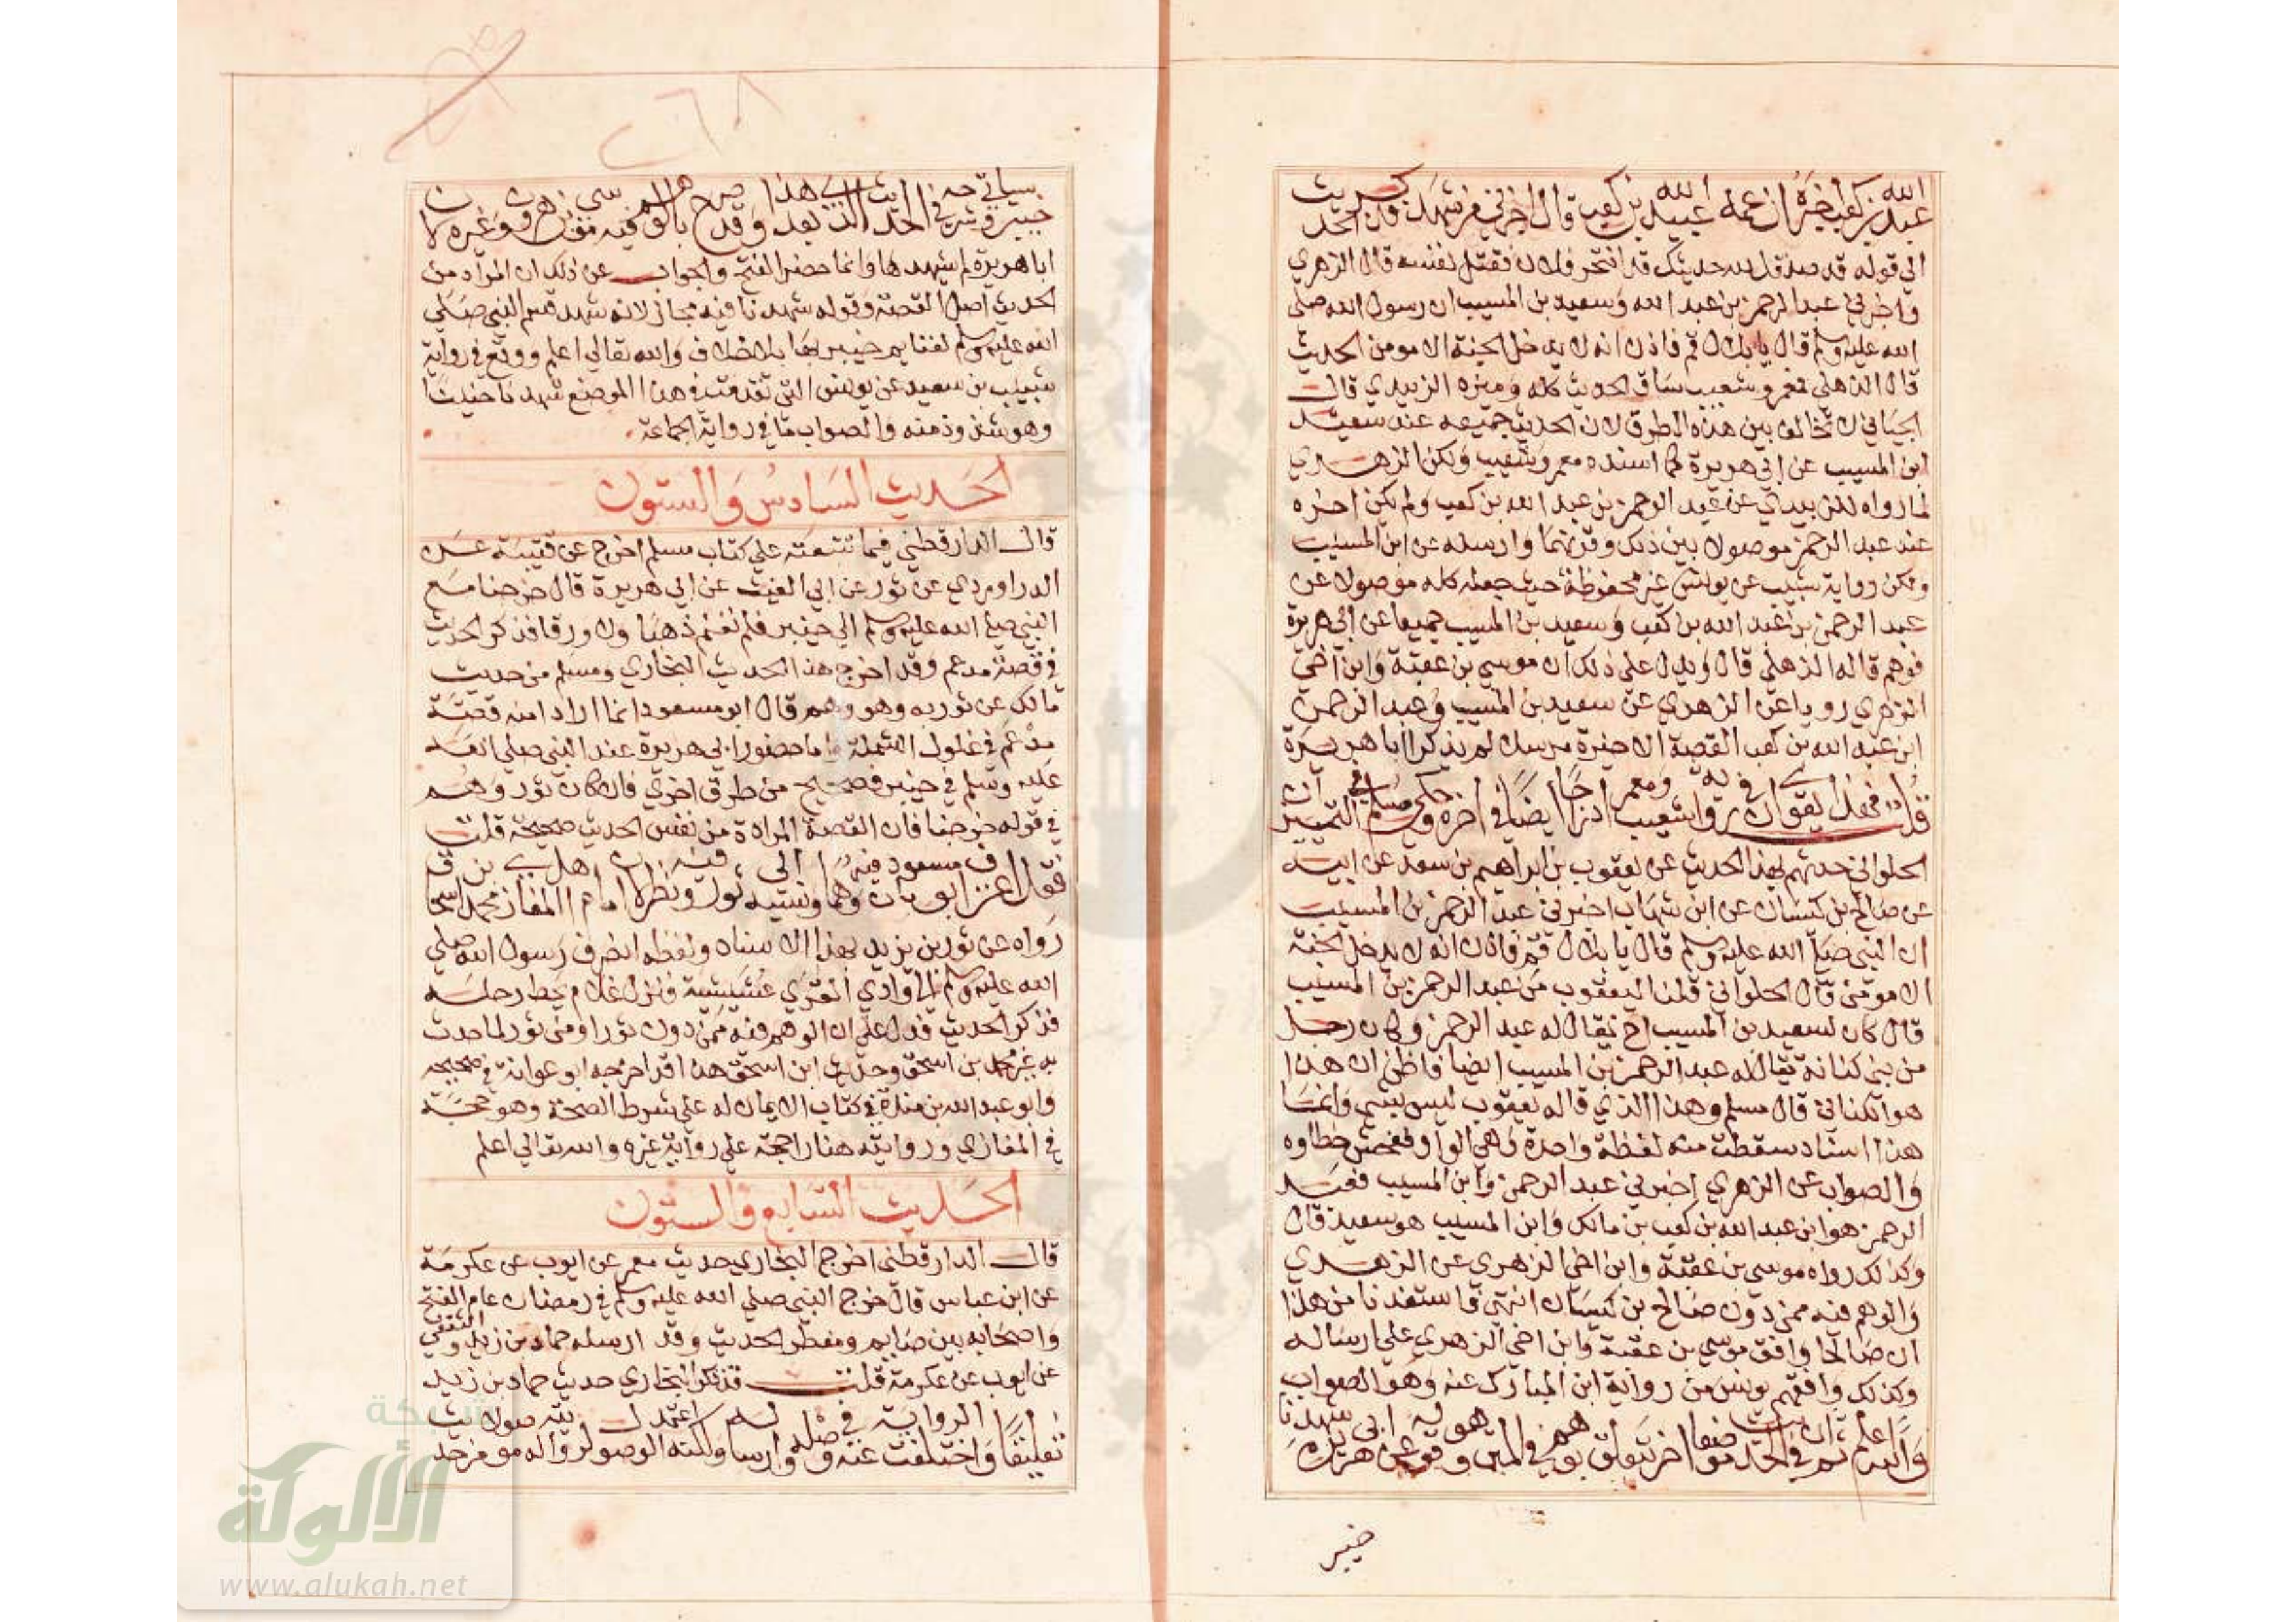 عبد الله بن كعب اخبره ان عمه عبيد الله بن كعب قال اخبرني من شهد فذكر الحديث
الي قوله قد صدق الله حديثك قد انتحر فلان فقتل نفسه قال الزهري
واخبرني عبد الرحمن بن عبد الله وسعيد بن المسيب ان رسول الله صلى
الله عليه وسلم قال يا بلال قم فاذن انه لا يدخل الجنة الا مومن الحديث
قال الذهلي فمعمر وشعيب ساق الحديث كله وميزه الزبيدي قال
الجياني لا تخالف بين هذه الطرق لان الحديث جميعه عند سعيد
ابن المسيب عن ابي هريرة كما اسنده معمر وشعيب ولكن الزهري
لما رواه للزبيدي عن عبد الرحمن بن عبد الله بن كعب ولم يكن اخره
عند عبد الرحمن موصولا بين ذلك وقرنهما وارسله عن ابن المسيب
ولكن رواية شبيب عن يونس غير محفوظة حيث جعله كله موصولا عن
عبد الرحمن بن عبد الله بن كعب وسعيد بن المسيب جميعا عن ابي هريرة
فوهم قاله الذهلي قال ويدل على ذلك ان موسي بن عقبة وابن اخي
الزهري رويا عن الزهري عن سعيد بن المسيب وعبد الرحمن
ابن عبد الله بن كعب القصة الاخيرة مرسلا لم يذكرا ابا هريرة
قلت فعلى هذا يقوى ان في رواية شعيب ومعمر ادراجا ايضا في اخره وحكى مسلم في التمييز ان
الحلواني حدثهم بهذا الحديث عن يعقوب بن ابراهيم بن سعد عن ابيه
عن صالح بن كيسان عن ابن شهاب اخبرني عبد الرحمن بن المسيب
ان النبي صلى الله عليه وسلم قال يا بلال قم فاذن انه لا يدخل الجنة
الا مومن قال الحلواني قلنا ليعقوب من عبد الرحمن بن المسيب
قال كان لسعيد بن المسيب اخ يقال له عبد الرحمن وكان رجل
من بني كنانة يقال له عبد الرحمن بن المسيب ايضا فاظن ان هذا
هو الكناني قال مسلم وهذا الذي قاله يعقوب ليس بشي وانما
هذا اسناد سقطت منه لفظة واحدة وهي الواو ففحش خطاوه
والصواب عن الزهري اخبرني عبد الرحمن وابن المسيب فعبد
الرحمن هو ابن عبد الله بن كعب بن مالك وابن المسيب هو سعيد قال
وكذلك رواه موسي بن عقبة وابن اخي الزهري عن الزهري
والوهم فيه ممن دون صالح بن كيسان انتهى فاستفدنا من هذا
ان صالحا وافق موسي بن عقبة وابن اخي الزهري علي ارساله
وكذلك وافقهم يونس من رواية ابن المبارك عنه وهو الصواب
والله اعلم ثم ان في الحديث موضعا اخر يتعلق بوهم في المتن وهو قوله عن ابي هريرة شهدنا
خيبر
خيبر وسياتي شرحه في الحديث الذي يلي هذا بعد وقد صرح بالوهم فيه موسي بن هرون وغيره لان
ابا هريرة لم يشهدها وانما حضر الفتح والجواب عن ذلك ان المراد من
الحديث اصل القصة وقوله شهدنا فيه مجاز لانه شهد قسم النبي صلي
الله عليه وسلم لغنايم خيبر بها بلا خلاف والله تعالي اعلم ووقع في رواية
شبيب بن سعيد عن يونس التي تقدمت في هذا الموضع شهدنا حنينا
وهو شذوذ منه والصواب ما في رواية الجماعة
الحديث السادس والستون
قال الدارقطني فيما تتبعته علي كتاب مسلم اخرج عن قتيبة عن
الدراوردي عن ثور عن ابي الغيث عن ابي هريرة قال خرجنا مع
النبي صلي الله عليه وسلم الي خيبر فلم نغنم ذهبا ولا ورقا فذكر الحديث
في قصة مدعم وقد اخرج هذا الحديث البخاري ومسلم من حديث
مالك عن ثور به وهو وهم قال ابو مسعود انما اراد منه قصة
مدعم في غلول الشملة واما حضور ابي هريرة عند النبي صلي الله
عليه وسلم في خيبر فصحيح من طرق اخري فان كان ثور وهم
في قوله خرجنا فان القصة المرادة من نفس الحديث صحيحة قلت
فقد اعترف ابو مسعود بان فيه وهما ونسبه الى ثور وفيه نظر لان امام اهل المغازي محمد بن اسحاق
رواه عن ثور بن يزيد بهذا الاسناد ولفظه انصرف رسول الله صلي
الله عليه وسلم الي وادي القري عشيشية فنزل غلام يحط رحله
فذكر الحديث فدل علي ان الوهم فيه ممن دون ثور او من ثور لما حدث
به غير محمد بن اسحق وحديث ابن اسحق هذا قد اخرجه ابو عوانة في صحيحه
وابو عبد الله بن مندة في كتاب الايمان له علي شرط الصحة وهو حجة
في المغازي وروايته هنا راجحة علي رواية غيره والله تعالي اعلم
الحديث السابع والستون
قال الدارقطني اخرج البخاري حديث معمر عن ايوب عن عكرمة
عن ابن عباس قال خرج النبي صلي الله عليه وسلم في رمضان عام الفتح
واصحابه بين صايم ومفطر الحديث وقد ارسله حماد بن زيد والثقفي
عن ايوب عن عكرمة قلت قد ذكر البخاري حديث حماد بن زيد
تعليقا واختلفت الرواية عنه في وصله وارساله ولكنه اعتمد الوصول
www.alukah.net
شبكة
الألوكة